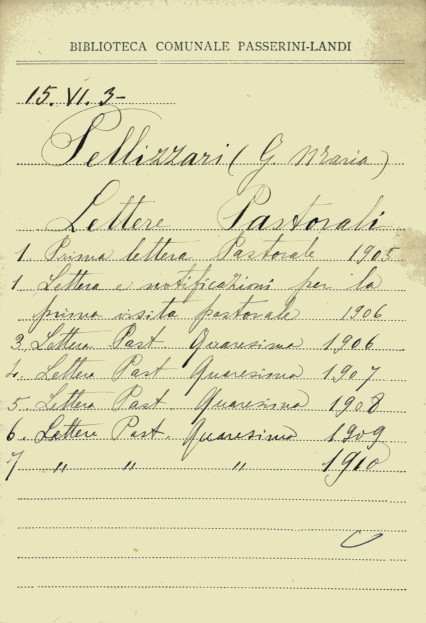 BIBLIOTECA COMUNALE PASSERINI-LANDI
15. VI. 3-
Pellizzari (G Maria)
Lettere Pastorali
1 Prima lettera Pastorale 1905
1 Lettera e notificazioni per la
prima visita pastorale 1906
3 Lettera Past Quaresima 1906
4. Lettera Past Quaresima 1907
5. Lettera Past. Quaresima 1908
6. Lettere Past. Quaresima 1909
7 " " " 1910